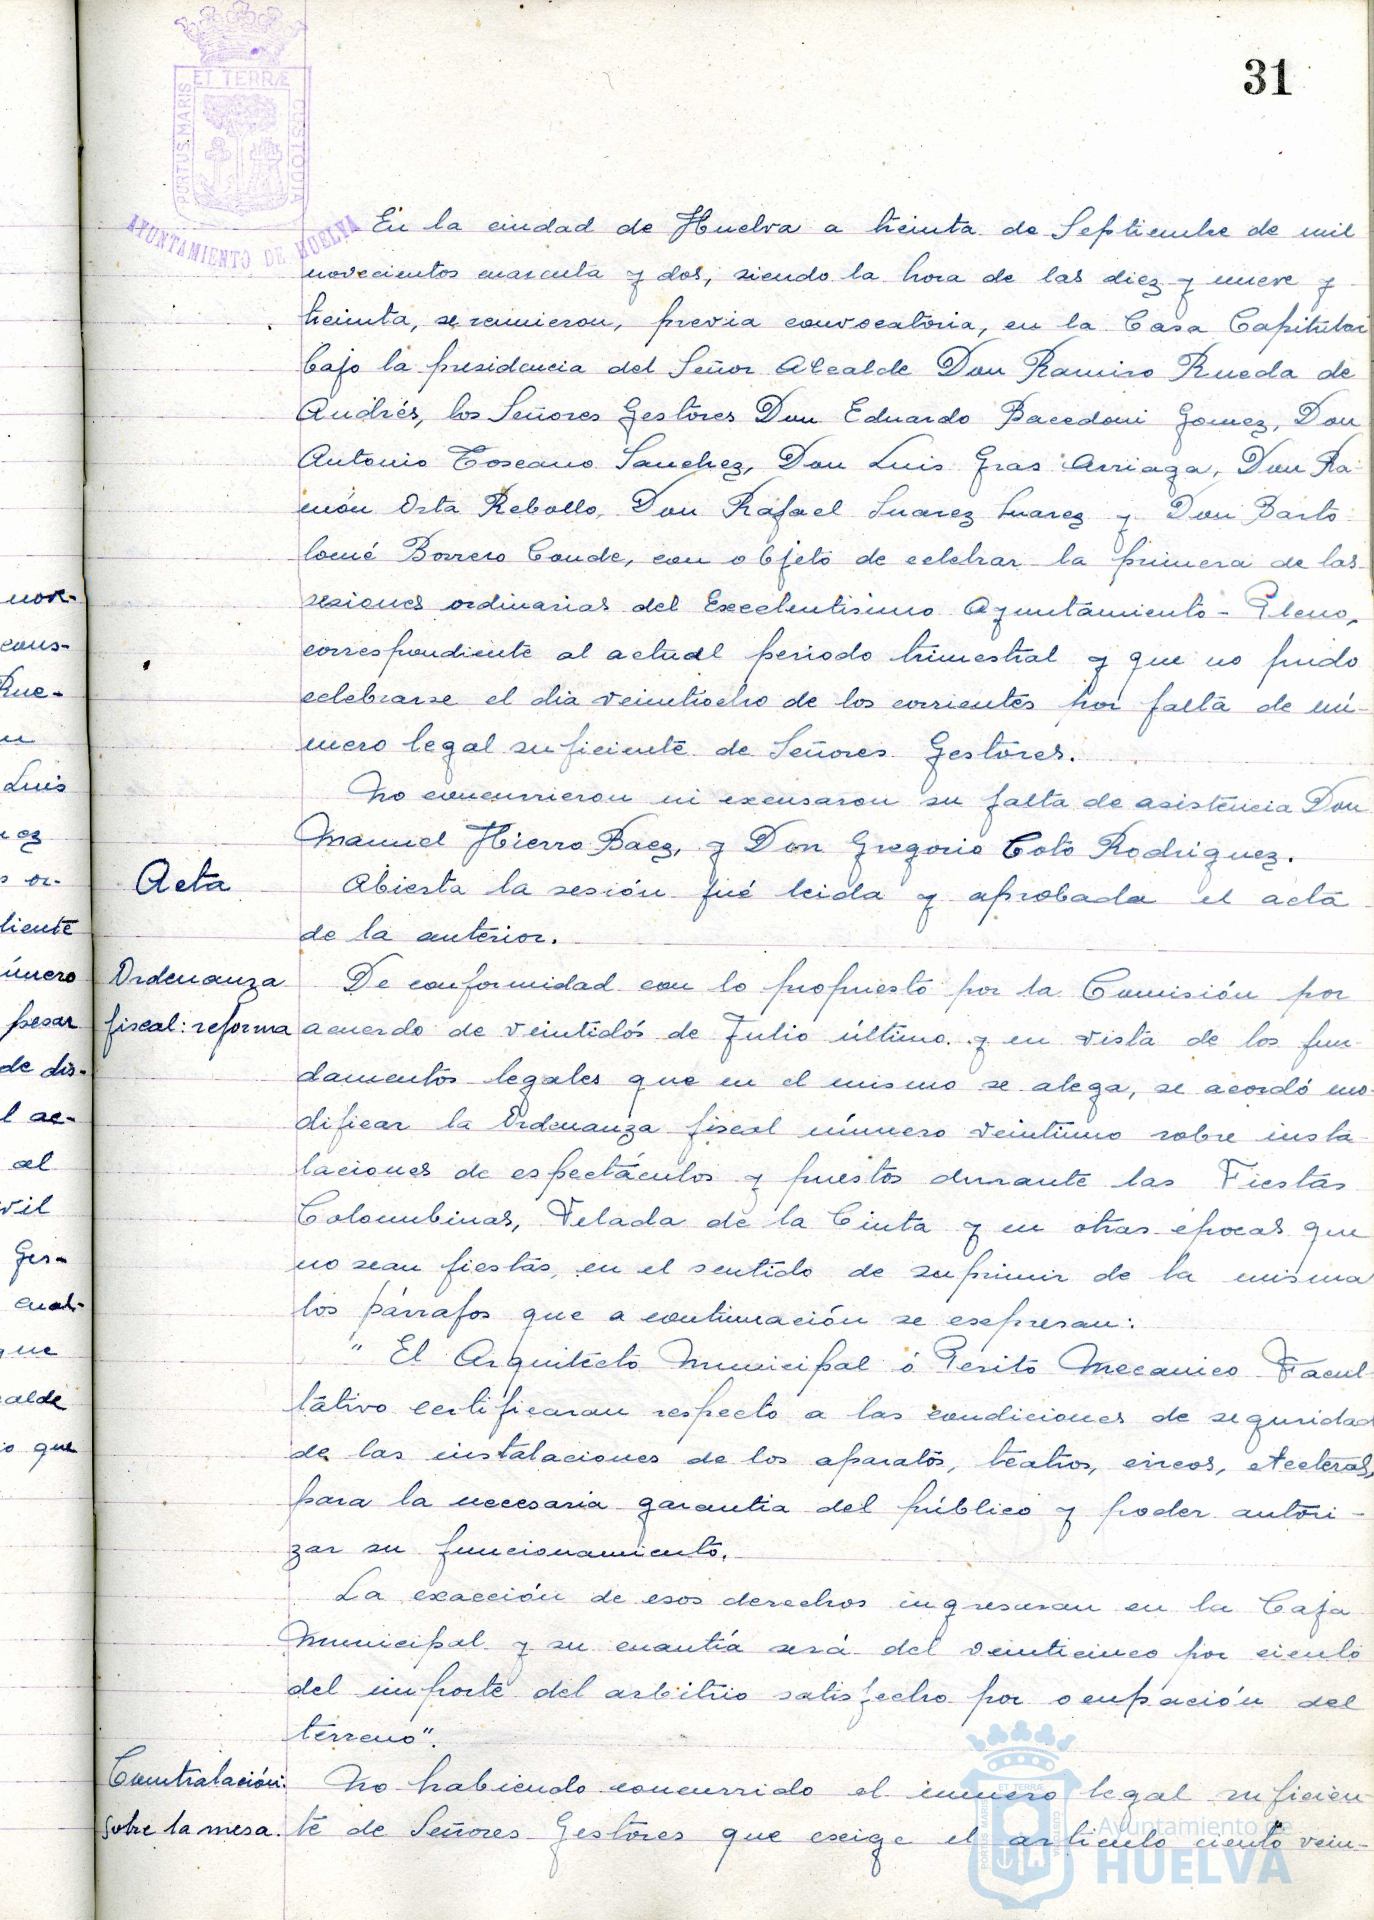 31
ET TERRÆ
PORTUS MARIS
CUSTODIA
AYUNTAMIENTO DE HUELVA
En la ciudad de Huelva a treinta de Septiembre de mil
novecientos cuarenta y dos, siendo la hora de las diez y nueve y
treinta, se reunieron, previa convocatoria, en la Casa Capitular
bajo la presidencia del Señor Alcalde Don Ramiro Rueda de
Andrés, los Señores Gestores Don Eduardo Bacedoni Gomez, Don
Antonio Toscano Sanchez, Don Luis Gras Arriaga, Don Ra-
món Orta Rebollo, Don Rafael Suarez Suarez y Don Barto-
lomé Borrero Conde, con objeto de celebrar la primera de las
sesiones ordinarias del Excelentisimo Ayuntamiento-Pleno,
correspondiente al actual periodo trimestral y que no pudo
celebrarse el dia veintiocho de los corrientes por falta de nú-
mero legal suficiente de Señores Gestores.
No concurrieron ni excusaron su falta de asistencia Don
Manuel Hierro Baez, y Don Gregorio Coto Rodriguez.
Acta
Abierta la sesión fué leida y aprobada el acta
de la anterior.
Ordenanza
fiscal: reforma
De conformidad con lo propuesto por la Comisión por
acuerdo de veintidós de Julio último. y en vista de los fun-
damentos legales que en el mismo se alega, se acordó mo-
dificar la Ordenanza fiscal número veintiuno sobre insta-
laciones de espectáculos y puestos durante las Fiestas
Colombinas, Velada de la Cinta y en otras épocas que
no sean fiestas, en el sentido de suprimir de la misma
los párrafos que a continuación se expresan:
" El Arquitecto Municipal ó Perito Mecanico Facul-
tátivo certificaran respecto a las condiciones de seguridad
de las instalaciones de los aparatos, teatros, circos, etceteras,
para la necesaria garantia del público y poder autori-
zar su funcionamiento.
La exacción de esos derechos ingresaran en la Caja
Municipal y su cuantía será del veinticinco por ciento
del importe del arbitrio satisfecho por ocupación del
terreno".
Contratación:
sobre la mesa.
No habiendo concurrido el número legal suficien-
te de Señores Gestores que exige el articulo ciento vein-
nove-
cons-
Rue-
Luis
ez
or-
diente
úmero
pesar
de dis-
l ac-
al
vil
Ges-
cual-
que
calde
o que
ET TERRÆ
PORTUS MARIS
CUSTODIA
Ayuntamiento de
HUELVA